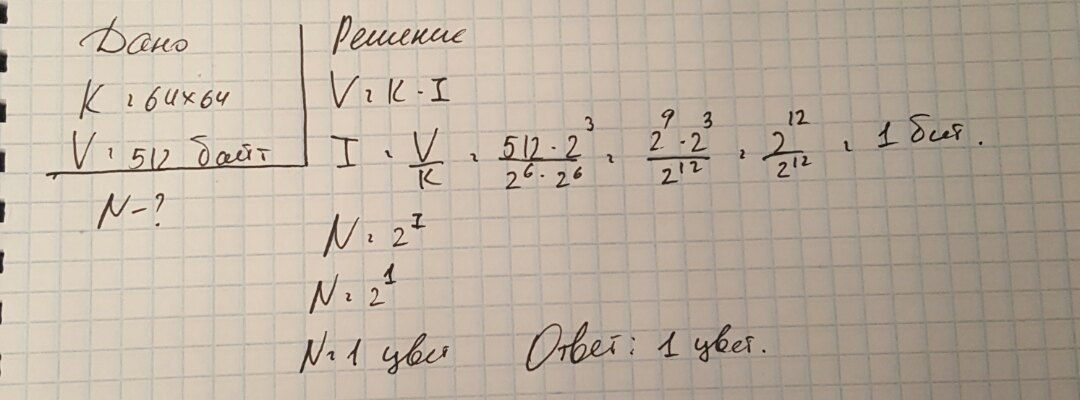 Дано
K = 64×64
V = 512 байт
N - ?
Решение
V = K · I
I = V/K = (512 · 2³)/(2⁶ · 2⁶) = (2⁹ · 2³)/2¹² = 2¹²/2¹² = 1 бит.
N = 2ᴵ
N = 2¹
N = 1 цвет Ответ: 1 цвет.